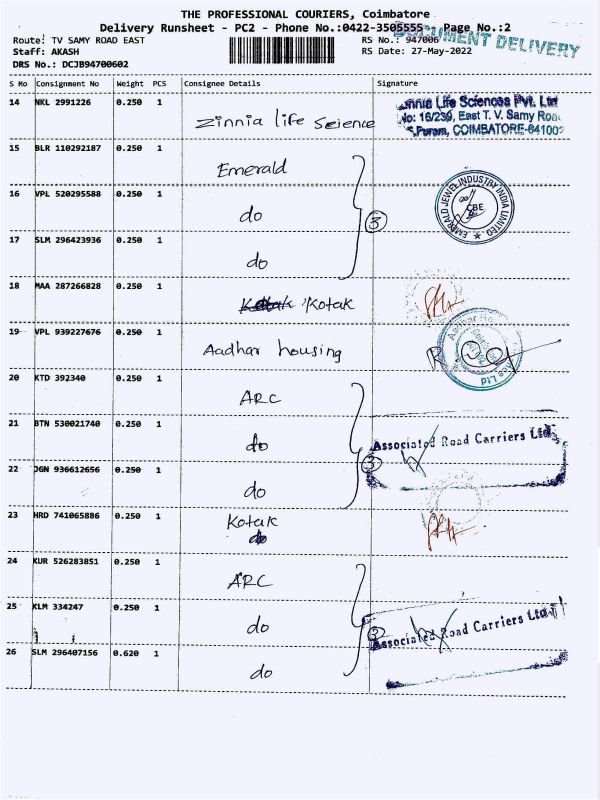 THE PROFESSIONAL COURIERS, Coimbatore
Delivery Runsheet - PC2 - Phone No.:0422-3505555 Page No.:2
DOCUMENT DELIVERY
Route: TV SAMY ROAD EAST RS No.: 947006
Staff: AKASH RS Date: 27-May-2022
DRS No.: DCJB94700602
S No Consignment No Weight PCS Consignee Details Signature
14 NKL 2991226 0.250 1 Zinnia life Science
Zinnia Life Sciences Pvt. Ltd
No: 16/239, East T. V. Samy Road
COIMBATORE-641002
15 BLR 110292187 0.250 1 Emerald
16 VPL 520295588 0.250 1 do 3
EMERALD JEWEL INDUSTRY INDIA LIMITED
CBE
17 SLM 296423936 0.250 1 do
18 MAA 287266828 0.250 1 Kotak
19 VPL 939227676 0.250 1 Aadhar housing
20 KTD 392340 0.250 1 ARC
21 BTN 530021740 0.250 1 do
Associated Road Carriers Ltd.
22 JGN 936612656 0.250 1 do 3
23 HRD 741065886 0.250 1 Kotak
24 KUR 526283851 0.250 1 ARC
25 KLM 334247 0.250 1 do 3
Associated Road Carriers Ltd.
26 SLM 296407156 0.620 1 do